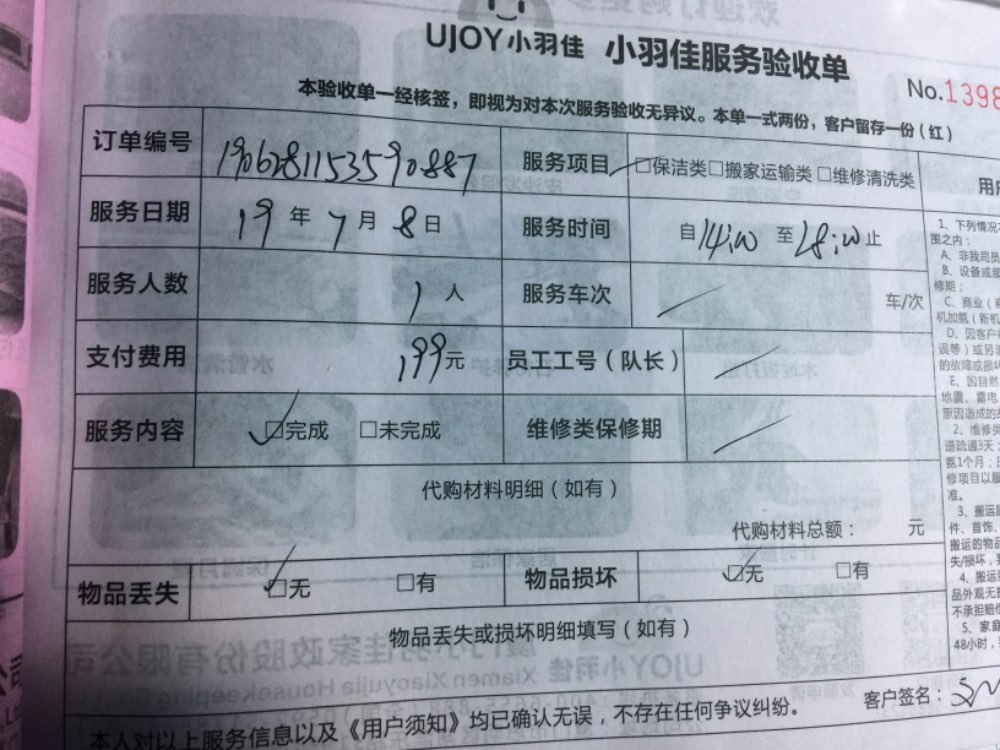 UJOY小羽佳 小羽佳服务验收单
No.1398
本验收单一经核签，即视为对本次服务验收无异议。本单一式两份，客户留存一份（红）
订单编号 190628115359088​7 服务项目 □保洁类□搬家运输类 □维修清洗类
服务日期 19 年 7 月 8 日 服务时间 自 14:00 至 18:00 止
服务人数 1 人 服务车次 车/次
支付费用 199元 员工工号（队长）
服务内容 □完成 □未完成 维修类保修期
代购材料明细（如有）
代购材料总额： 元
物品丢失 □无 □有 物品损坏 □无 □有
物品丢失或损坏明细填写（如有）
客户签名：
本人对以上服务信息以及《用户须知》均已确认无误，不存在任何争议纠纷。
1、下列情况
围之内：
A、非我司员
B、设备或部
修期；
C、商业（
机加氨（新机
D、因客户
误等）或另
的故障或损坏
E、因自然
地震、雷电
原因造成的
2、维修类
道疏通3天；
氨1个月；
修项目以服
准。
3、搬运
件、首饰、
搬运的物品
失/损坏，
4、搬运
品外观无
不承担赔偿
5、家庭
48小时，